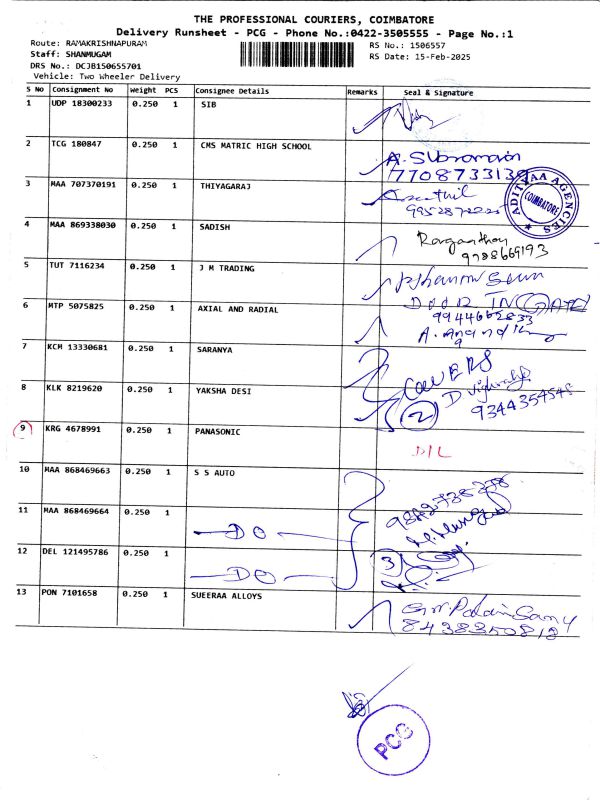 THE PROFESSIONAL COURIERS, COIMBATORE
Delivery Runsheet - PCG - Phone No.:0422-3505555 - Page No.:1
Route: RAMAKRISHNAPURAM
RS No.: 1506557
Staff: SHANMUGAM
RS Date: 15-Feb-2025
DRS No.: DCJB150655701
Vehicle: Two Wheeler Delivery
S No Consignment No Weight PCS Consignee Details Remarks Seal & Signature
1 UDP 18300233 0.250 1 SIB
2 TCG 180847 0.250 1 CMS MATRIC HIGH SCHOOL
A. Subramanin
7708733139
3 MAA 707370191 0.250 1 THIYAGARAJ
ADITYAA AGENCIES
COIMBATORE
4 MAA 869338030 0.250 1 SADISH
9788669193
5 TUT 7116234 0.250 1 J M TRADING
DOOR IN GATE
6 MTP 5075825 0.250 1 AXIAL AND RADIAL
9944662833
7 KCM 13330681 0.250 1 SARANYA
COVERS
8 KLK 8219620 0.250 1 YAKSHA DESI
2
9344354548
9 KRG 4678991 0.250 1 PANASONIC
D/L
10 MAA 868469663 0.250 1 S S AUTO
11 MAA 868469664 0.250 1
DO
12 DEL 121495786 0.250 1
DO
3
13 PON 7101658 0.250 1 SUEERAA ALLOYS
8438350818
PCG